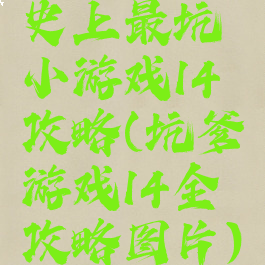 史上最坑
小游戏14
攻略(坑爹
游戏14全
攻略图片)